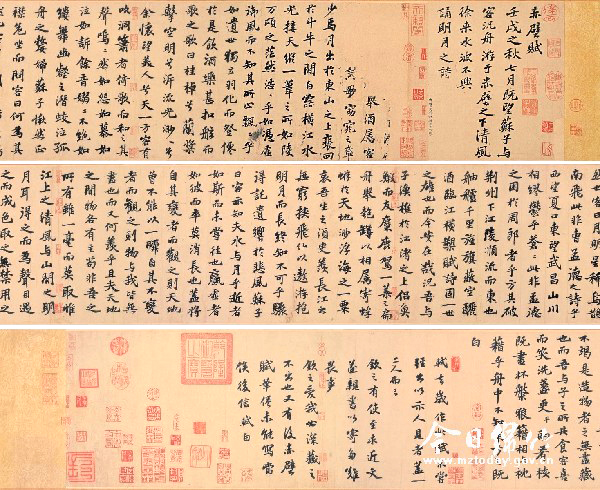 赤壁賦
壬戌之秋七月既望蘇子與
客泛舟游于赤壁之下清風
徐來水波不興
舉酒屬客
誦明月之詩
歌窈窕之章
少焉月出於東山之上裴回
於斗牛之間白露橫江水
光接天縱一葦之所如陵
萬頃之茫然浩浩乎如馮虛
御風而不知其所止飄飄乎
如遺世獨立羽化而登僊
於是飲酒樂甚扣舷而
歌之歌曰桂棹兮蘭槳
擊空明兮泝流光渺渺兮
余懷望美人兮天一方客有
吹洞簫者倚歌而和之其
聲嗚嗚然如怨如慕如
泣如訴餘音嫋嫋不絕如
縷舞幽壑之潛蛟泣孤
舟之嫠婦蘇子愀然正
襟危坐而問客曰何為其
然也客曰月明星稀烏鵲
南飛此非曹孟德之詩乎
西望夏口東望武昌山川
相繆鬱乎蒼蒼此非孟德
之困於周郎者乎方其破
荊州下江陵順流而東也
舳艫千里旌旗蔽空釃
酒臨江橫槊賦詩固一世
之雄也而今安在哉況吾與
子漁樵於江渚之上侶魚
鰕而友麋鹿駕一葉之扁
舟舉匏樽以相屬寄蜉
蝣於天地渺浮海之一粟
哀吾生之須臾羨長江之無
窮挾飛仙以遨遊抱
明月而長終知不可乎驟
得託遺響於悲風蘇子
曰客亦知夫水與月乎逝者
如斯而未嘗往也贏虛者
如彼而卒莫消長也蓋將
自其變者而觀之則天地
曾不能以一瞬自其不變
者而觀之則物與我皆無
盡也而又何羨乎且夫天地
之間物各有主苟非吾之
所有雖一毫而莫取惟
江上之清風與山間之明
月耳得之而為聲目遇
之而成色取之無禁用之
不竭是造物者之無盡藏
也而吾與子之所共食客喜
而笑洗盞更酌肴核
既盡杯盤狼籍相與枕
藉乎舟中不知東方之既
白
軾去歲作此賦未嘗
輕出以示人見者蓋一
二人而已
欽之有使至求近文
遂親書以寄多難
畏事
欽之愛我必深藏之
不出也又有後赤壁
賦筆倦未能寫當
俟後信軾白
今日绵竹
www.mztoday.gov.cn